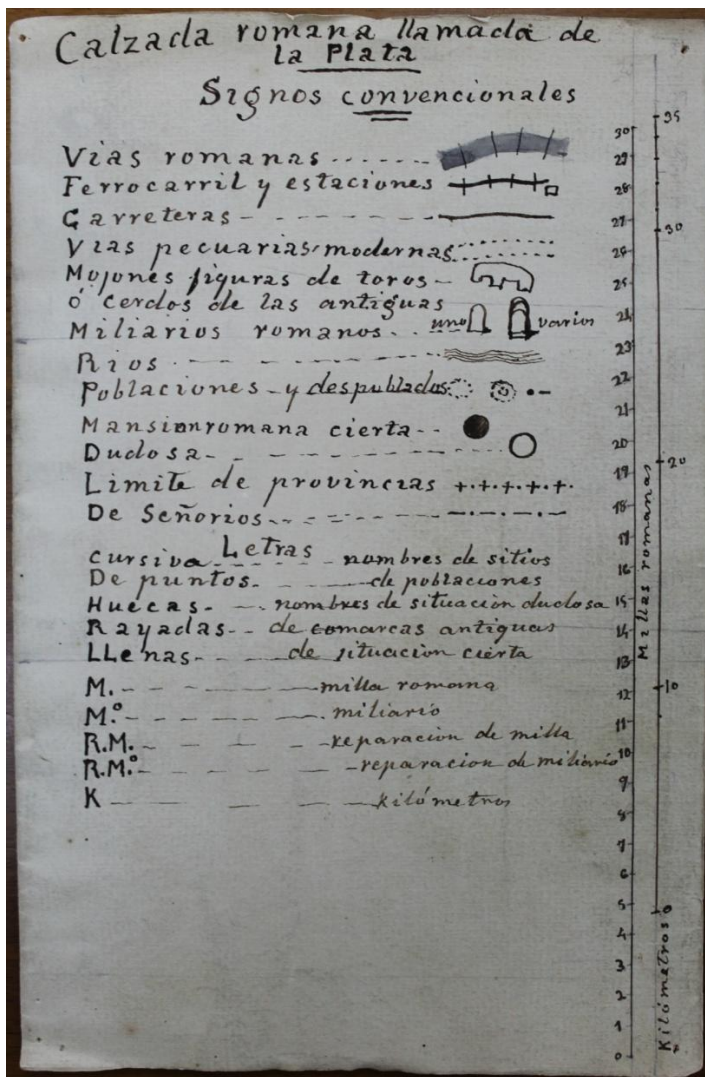 Calzada romana llamada de
la Plata
Signos convencionales
Vias romanas
Ferrocarril y estaciones
Carreteras
Vias pecuarias modernas
Mojones figuras de toros
ó cerdos de las antiguas
Miliarios romanos uno varios
Rios
Poblaciones y despoblados
Mansion romana cierta
Dudosa
Limite de provincias
De Señorios
Letras
Cursiva nombres de sitios
De puntos de poblaciones
Huecas nombres de situacion dudosa
Rayadas de comarcas antiguas
LLenas de situacion cierta
M. milla romana
M.º miliario
R.M. reparacion de milla
R.M.º reparacion de miliario
K kilómetros
30
29
28
27
26
25
24
23
22
21
20
19
18
17
16
15
14
13
12
11
10
9
8
7
6
5
4
3
2
1
0
Millas romanas
35
30
20
10
0
Kilómetros